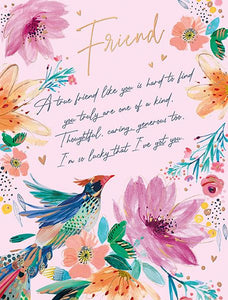 Friend
A true friend like you is hard to find
you truly are one of a kind.
Thoughtful, caring, generous too,
I'm so lucky that I've got you